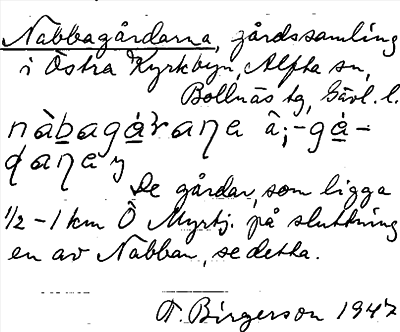 Nabbagårdarna, gårdssamling
i Östra Kyrkbyn, Alfta sn,
Bollnäs tg, Gävl. l.
De gårdar, som ligga
1/2 – 1 km Ö Myrtj. på sluttning
en av Nabban, se detta.
F. Birgerson 1947